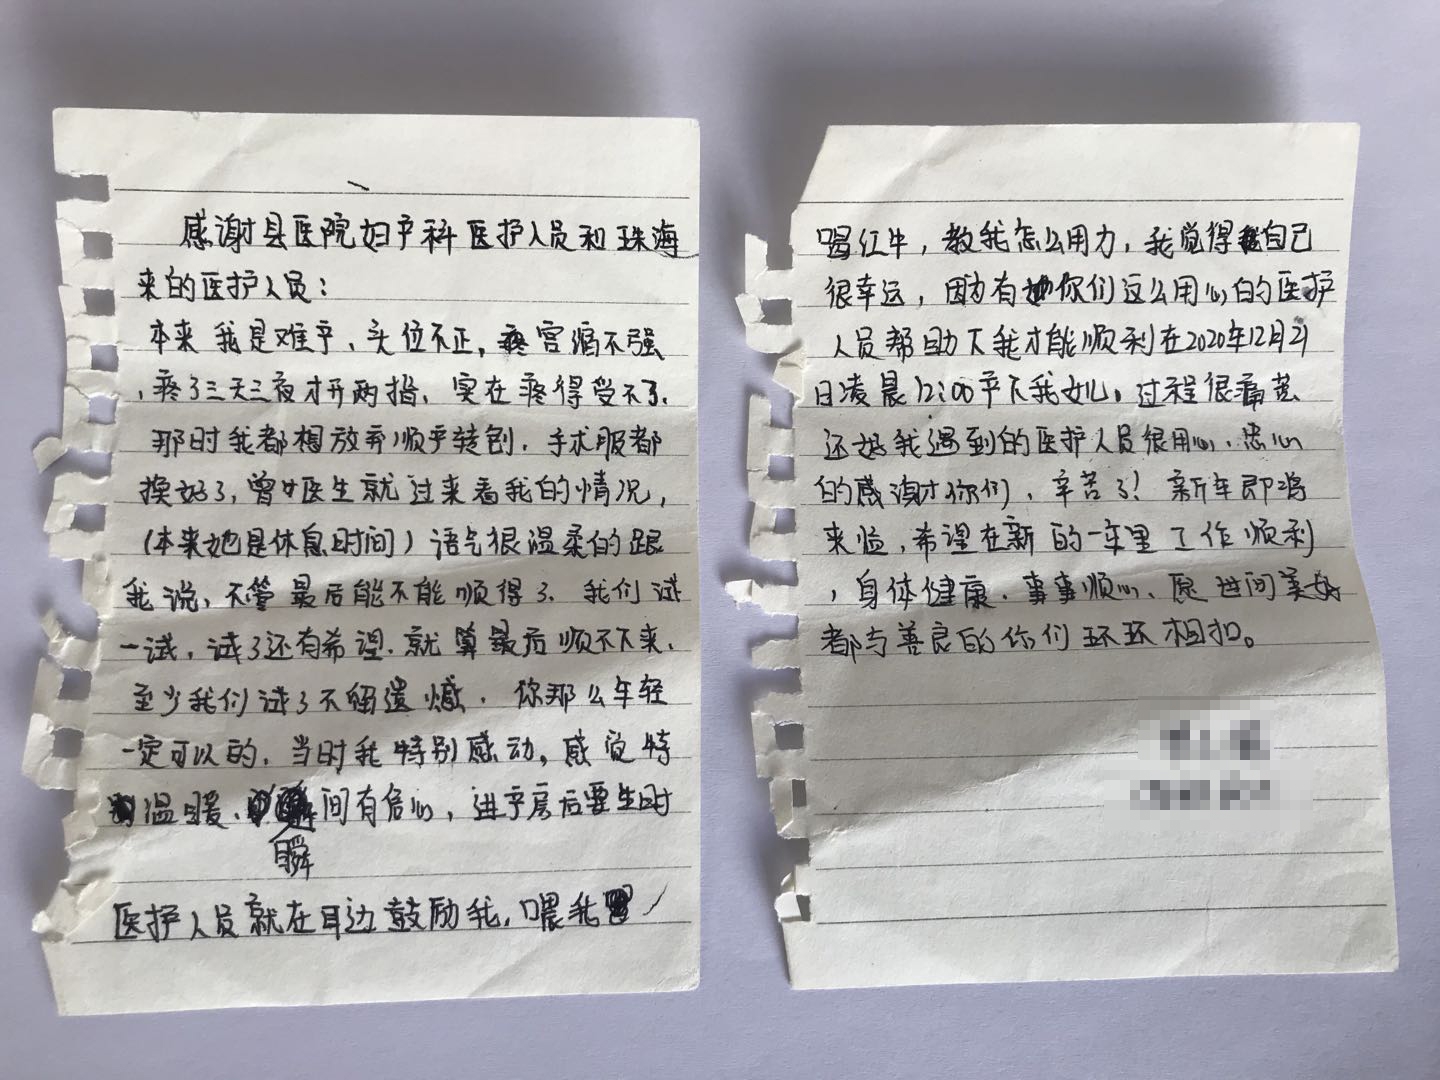 感谢县医院妇产科医护人员和珠海
来的医护人员：
本来我是难产、头位不正，宫缩不强
，疼了三天三夜才开两指，实在疼得受不了，
那时我都想放弃顺产转刨，手术服都
换好了，曾女医生就过来看我的情况，
（本来她是休息时间）语气很温柔的跟
我说，不管最后能不能顺得了，我们试
一试，试了还有希望，就算最后顺不下来，
至少我们试了不留遗憾，你那么年轻
一定可以的，当时我特别感动，感觉特
温暖、瞬间有信心，进产房后要生时
医护人员就在耳边鼓励我，喂我
喝红牛，教我怎么用力，我觉得自己
很幸运，因为有你们这么用心的医护
人员帮助下我才能顺利在2020年12月21
日凌晨12:00产下我女儿。过程很痛苦
还好我遇到的医护人员很用心，忠心
的感谢你们，辛苦了！新年即将
来临，希望在新的一年里工作顺利
，身体健康、事事顺心、愿世间美好
都与善良的你们环环相扣。